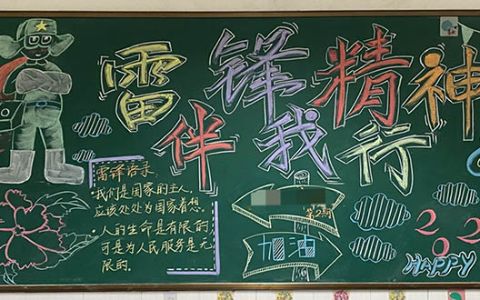 雷锋精神
伴我行
雷锋语录:
·我们是国家的主人,
应该处处为国家着想。
·人的生命是有限的
可是为人民服务是无
限的。
第2期
加油
202
HAPPY